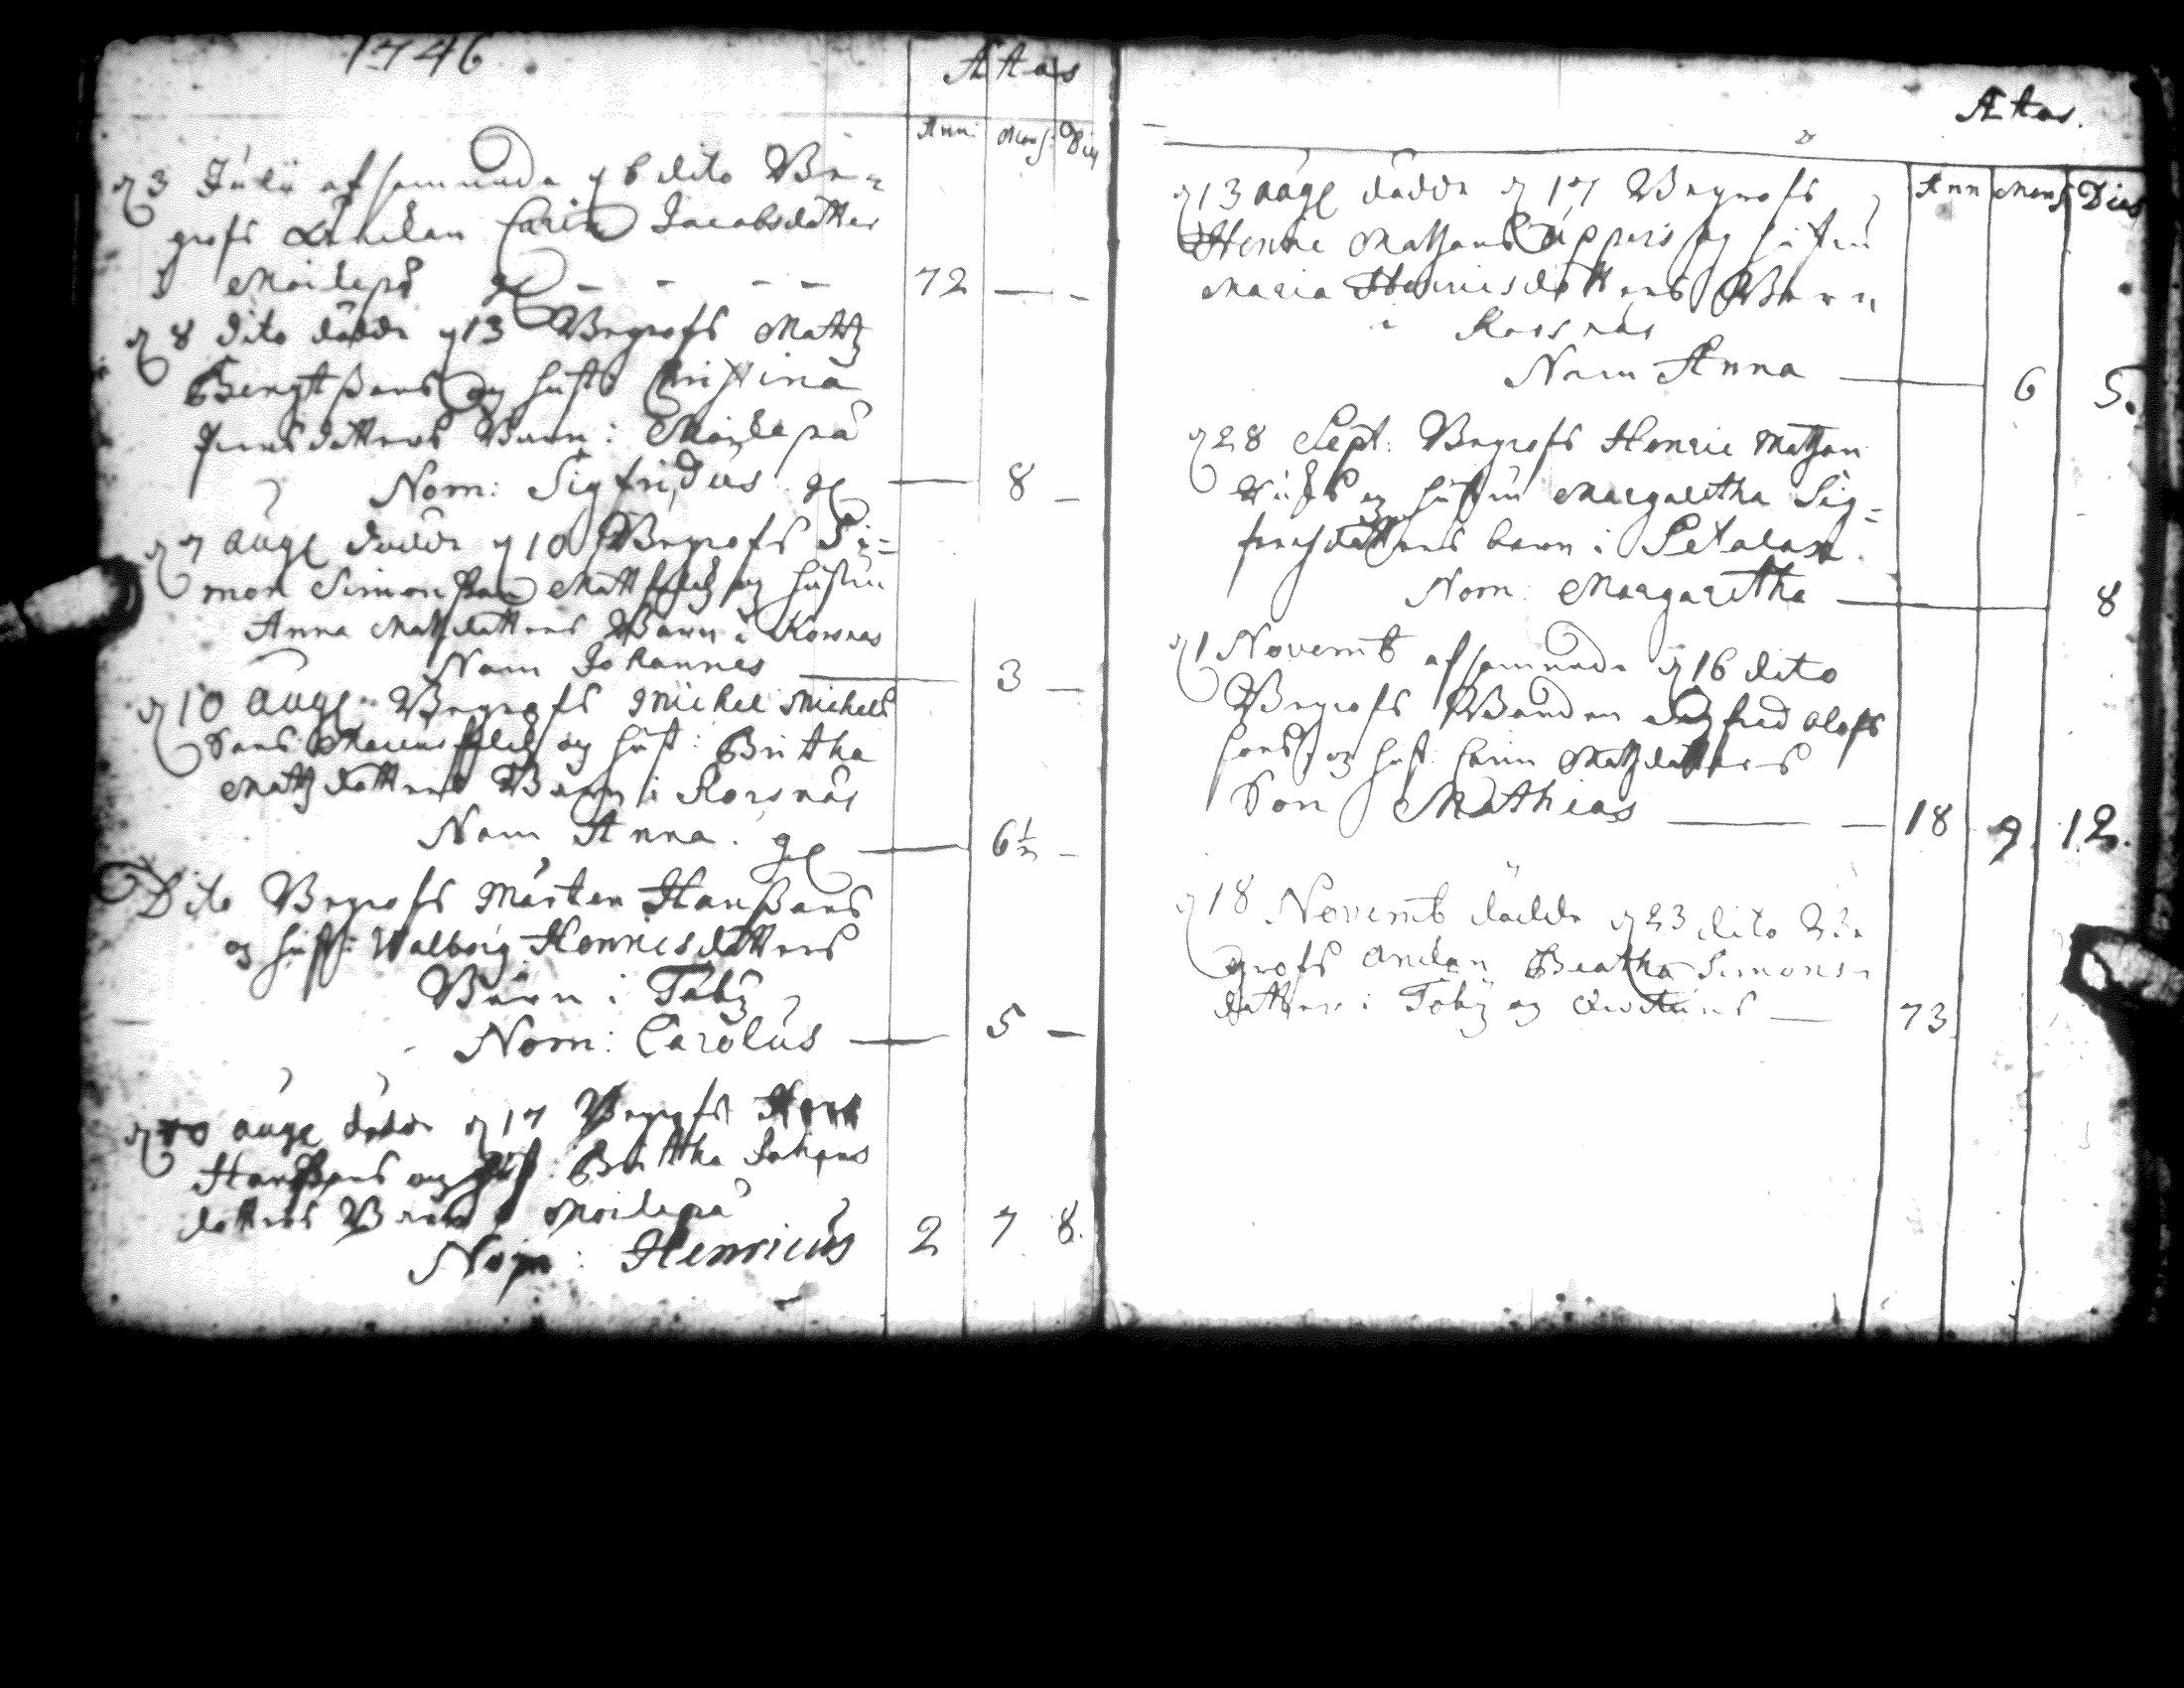 1746
Ætas
Ann: Mens: Dies
d 3 Julii afsomnade d 6 dito Be-
grofs Änckan Carin Jacobsdotter
i Moikepä — — — — 72 — -
d 8 dito dödde d 13 Begrofs Matz
Bengtßons og hust: Christina
dotters Barn i Moikepä
Nom: Sigfridus — 8 -
d 7 Aug dödde d 10 Begrofs Si=
mon Simonßon og hustru
Anna Matzdotters Barn i Korsnäs
Nom Johannes — 3 —
d 10 Aug Begrofs Michel Michels
Sons og hust: Britha
Matzdotters Barn i Korsnäs
Nom Anna. — 6½ -
Dito Begrofs Mårten Hanßons
og hust: Walborg Henricsdotters
Barn i Töby
Nom: Carolus — 5 —
d Aug dödde d 17 Begrofs
Hanßons og hust: Brittha Johans
dotters Barn i Moikepä
Nom: Henricus 2 7 8.
Ætas.
Ann Mens Dies
d 13 Aug dödde d 17 Begrofs
Henric Matsons og hustru
Maria Henricsdotters Barn
i Korsnäs
Nom Anna — 6 5.
d 28 Sept: Begrofs Henric Matson
og hustru Margaretha Sig=
fredsdotters barn i Petalax.
Nom: Margaretha — 8
d 1 Novemb afsomnade d 16 dito
Begrofs Bonden Sigfred Olofs
sons og hust: Carin Matzdotters
Son Mathias — — 18 9 12.
d 18 Novemb dödde d 23 dito Be
grofs Änckan Beatha Simons-
dotter i Töby og — 73